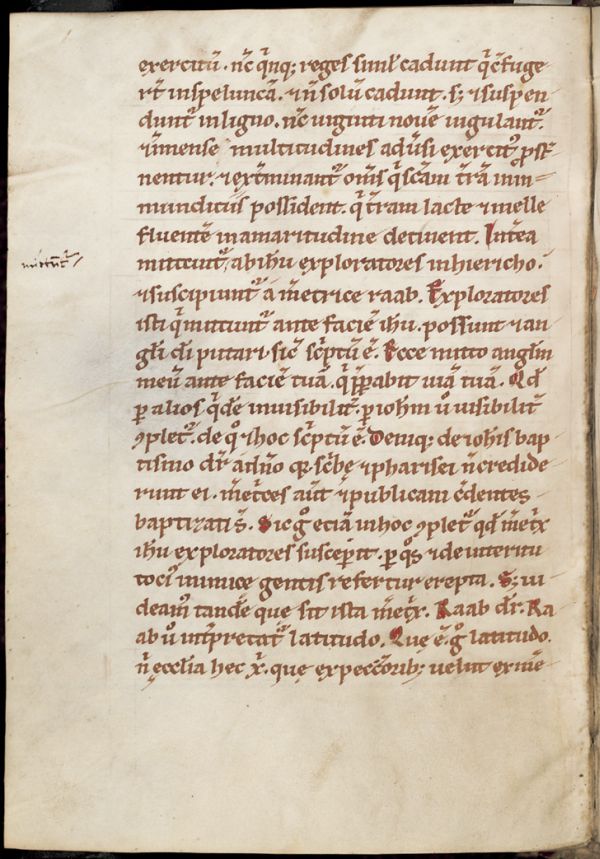 exercitū. nc̄ q̄nq; reges simł cadunt q̄ c̄fuge
rt̄ in speluncā. ⁊ n̄ solū cadunt. s; ⁊ suspen
dunt᷑ in ligno. nc̄ uiginti nouē iugulant᷑.
⁊ īmense multitudines adūsi exercit᷒ ꝓst̄
nentur. ⁊ ext̄minant᷑ om̄s q̄ scām t̄rā inm
mundiciis possident. q̄ t̄ram lacte ⁊ melle
fluentē in amaritudine detinent. Int̄ea
mittunt᷑
mittunt᷑ ab ihū exploratores in hiericho.
⁊ suscipiunt᷑ a m̄etrice raab. Exploratores
isti q̄ mittunt᷑ ante faciē ihū. possunt ⁊ an
głi dī putari. sic̄ sc̄ptū ē. Ecce mitto angłm
meū ante faciē tuā. q̄ p̄parabit uiā tuā. Qđ
ꝑ alios q̄dē inuisibilit᷑. ꝑ iohm̄ ū uisibilit᷑
ꝯplet᷑. de qͦ ⁊ hoc sc̄ptū ē. Deniq; de iohīs bap
tismo dr̄ ad dn̄o qͥ sc̄be ⁊ pharisei n̄ credide
runt ei. m̄et̄ces aūt ⁊ publicani c̄dentes
baptizati s̄. Sic gͦ eciā in hoc ꝯplet᷑ qđ m̄et̄x
ihū exploratores suscep̄it. ꝑ qͦs ⁊ de interitu
toci᷒ inimice gentis refertur erepta. S; ui
deam᷒ tandē que sit ista m̄et̄x. Raab dr̄. Ra
ab ū int̄pretat᷑ latitudo. Que ē gͦ latitudo.
n̄ ęccłia hec x̄. que ex peccc̄orib; uelut ex me